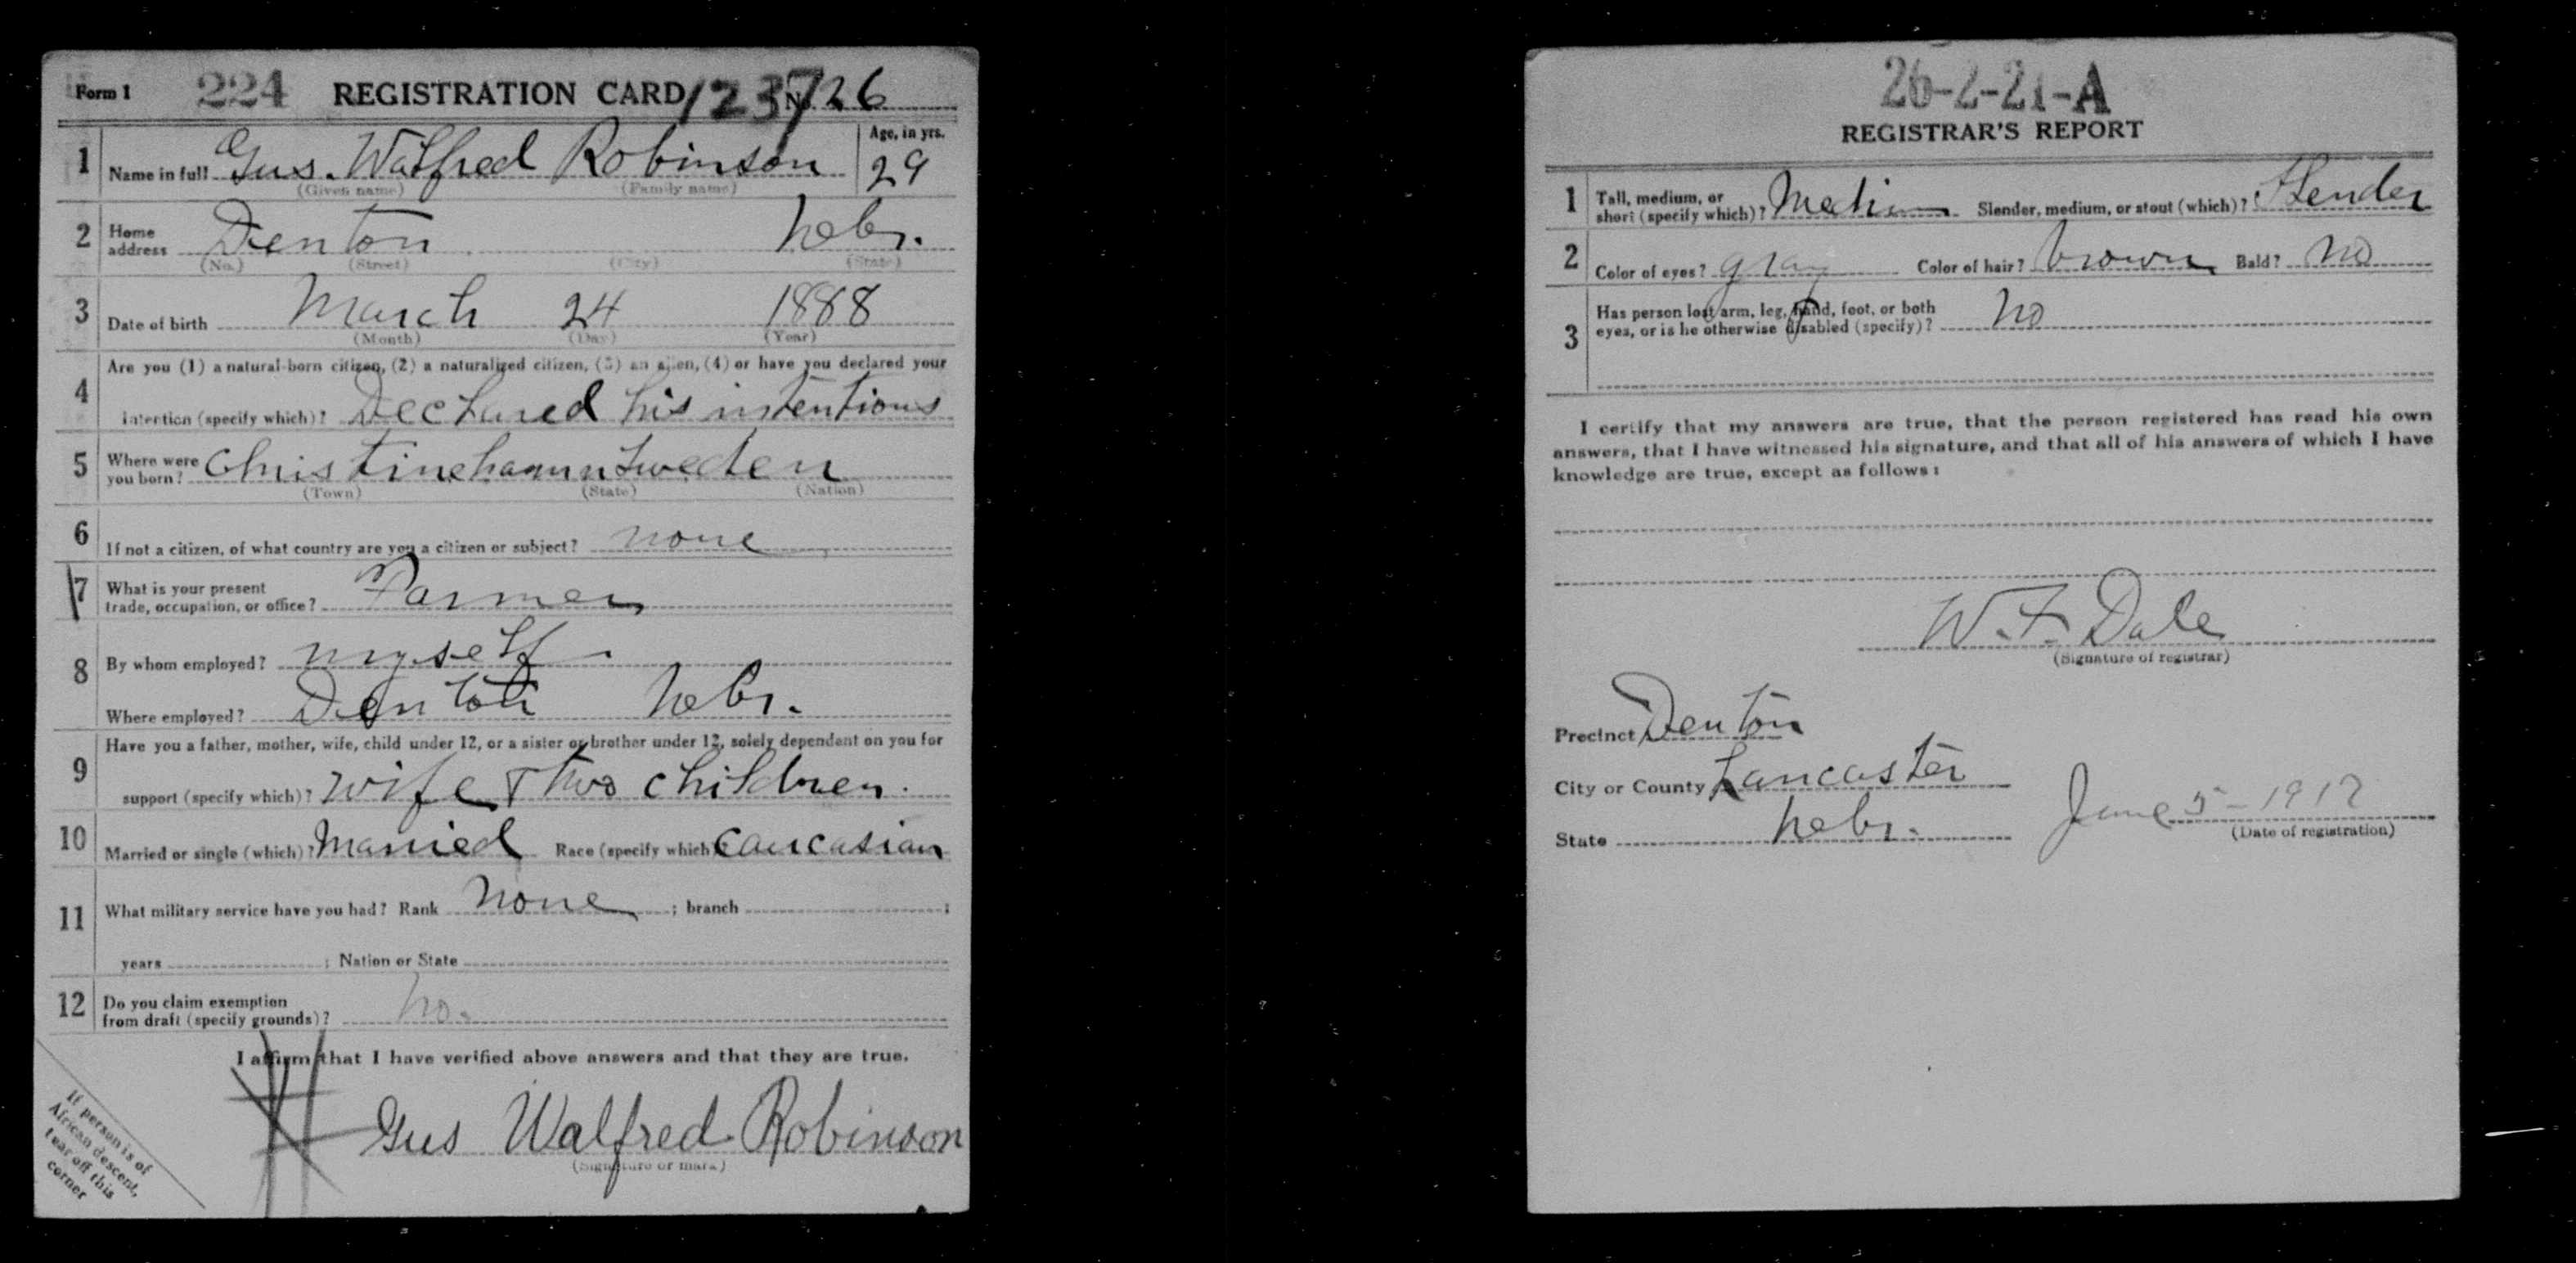 Form 1 224 REGISTRATION CARD 1237 No. 26
1 Name in full Gus. Walfred Robinson Age, in yrs. 29
(Given name) (Family name)
2 Home address Denton Nebr.
(No.) (Street) (City) (State)
3 Date of birth March 24 1888
(Month) (Day) (Year)
4 Are you (1) a natural-born citizen, (2) a naturalized citizen, (3) an alien, (4) or have you declared your
intention (specify which)? Declared his intentions
5 Where were you born? Christinehamn Sweden
(Town) (State) (Nation)
6 If not a citizen, of what country are you a citizen or subject? none
7 What is your present
trade, occupation, or office? Farmer
8 By whom employed? myself.
Where employed? Denton Nebr.
9 Have you a father, mother, wife, child under 12, or a sister or brother under 12, solely dependent on you for
support (specify which)? wife + two children.
10 Married or single (which)? Married Race (specify which) Caucasian
11 What military service have you had? Rank None ; branch ;
years ; Nation or State
12 Do you claim exemption
from draft (specify grounds)? No.
I affirm that I have verified above answers and that they are true.
Gus Walfred Robinson
(Signature or mark)
If person is of
African descent,
tear off this
corner
26-2-21-A
REGISTRAR'S REPORT
1 Tall, medium, or
short (specify which)? Medium Slender, medium, or stout (which)? Slender
2 Color of eyes? gray Color of hair? brown Bald? No
3 Has person lost arm, leg, hand, foot, or both
eyes, or is he otherwise disabled (specify)? No
I certify that my answers are true, that the person registered has read his own
answers, that I have witnessed his signature, and that all of his answers of which I have
knowledge are true, except as follows:
W. F. Dale
(Signature of registrar)
Precinct Denton
City or County Lancaster
State Nebr. June 5 - 1917
(Date of registration)